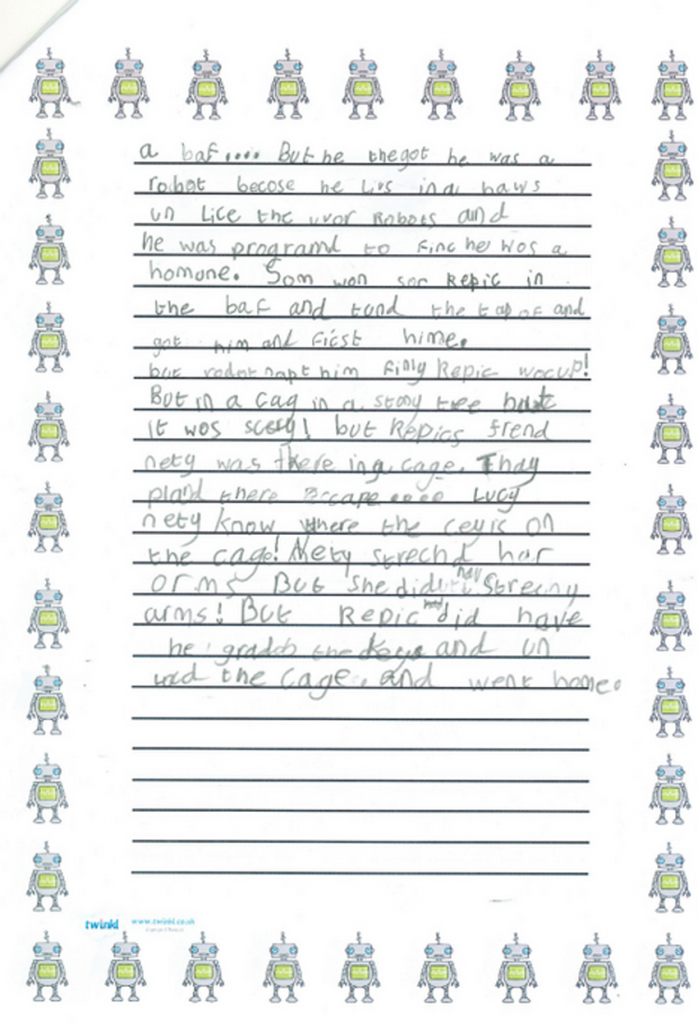 a baf.... But he thegot he was a
robot becose he livs in a haws
un lice the uvor Robots and
he was programd to finc he wos a
homone. Som won sor Repic in
the baf and turnd the tap of and
got him and ficst hime.
but robot napt him finly Repic wocup!
But in a cag in a stony tree
it wos scery! but Repics frend
nety was there in a cage. Thay
pland there Escape.... Lucy
nety know where the ceyis on
the cage! Nety strechd har
orms But She did hav Strechy
arms! But Repic did have
he grabb the keys and un
the cage. and went home.
twinkl www.twinkl.co.uk